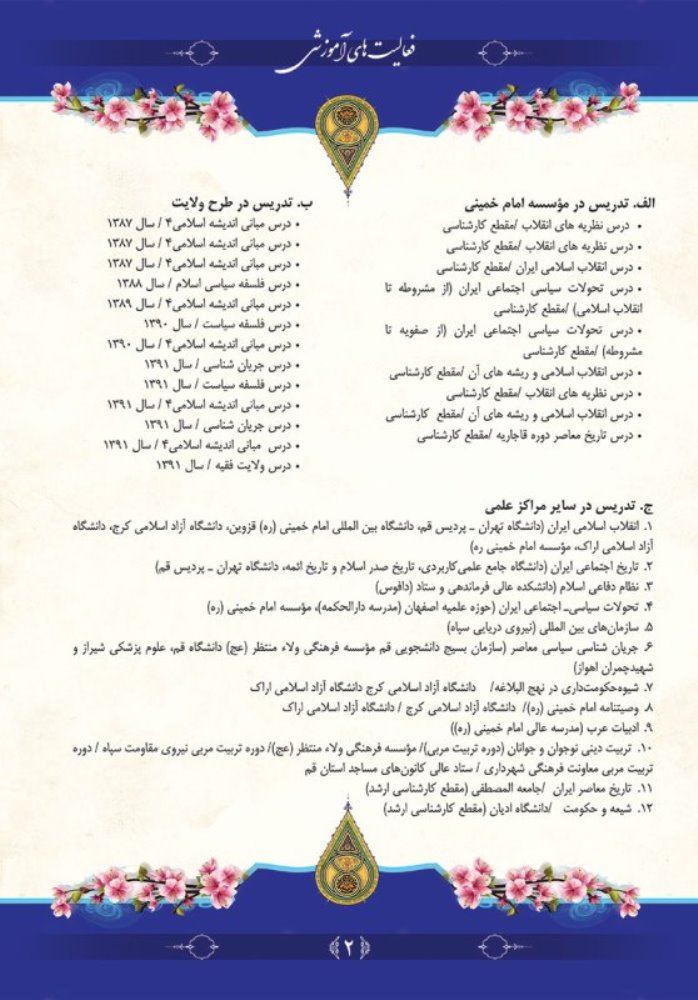 فعالیت های آموزشی
الف. تدریس در مؤسسه امام خمینی
• درس نظریه های انقلاب /مقطع کارشناسی
• درس نظریه های انقلاب /مقطع کارشناسی
• درس انقلاب اسلامی ایران /مقطع کارشناسی
• درس تحولات سیاسی اجتماعی ایران (از مشروطه تا
انقلاب اسلامی) /مقطع کارشناسی
• درس تحولات سیاسی اجتماعی ایران (از صفویه تا
مشروطه) /مقطع کارشناسی
• درس انقلاب اسلامی و ریشه های آن /مقطع کارشناسی
• درس نظریه های انقلاب /مقطع کارشناسی
• درس انقلاب اسلامی و ریشه های آن /مقطع کارشناسی
• درس تاریخ معاصر دوره قاجاریه /مقطع کارشناسی
ب. تدریس در طرح ولایت
• درس مبانی اندیشه اسلامی۴ / سال ۱۳۸۷
• درس مبانی اندیشه اسلامی۴ / سال ۱۳۸۷
• درس مبانی اندیشه اسلامی۴ / سال ۱۳۸۷
• درس فلسفه سیاسی اسلام / سال ۱۳۸۸
• درس مبانی اندیشه اسلامی۴ / سال ۱۳۸۹
• درس فلسفه سیاست / سال ۱۳۹۰
• درس مبانی اندیشه اسلامی۴ / سال ۱۳۹۰
• درس جریان شناسی / سال ۱۳۹۱
• درس فلسفه سیاست / سال ۱۳۹۱
• درس مبانی اندیشه اسلامی۴ / سال ۱۳۹۱
• درس جریان شناسی / سال ۱۳۹۱
• درس مبانی اندیشه اسلامی۴ / سال ۱۳۹۱
• درس ولایت فقیه / سال ۱۳۹۱
ج. تدریس در سایر مراکز علمی
۱. انقلاب اسلامی ایران (دانشگاه تهران ـ پردیس قم، دانشگاه بین المللی امام خمینی (ره) قزوین، دانشگاه آزاد اسلامی کرج، دانشگاه
آزاد اسلامی اراک، مؤسسه امام خمینی ره)
۲. تاریخ اجتماعی ایران (دانشگاه جامع علمی‌کاربردی، تاریخ صدر اسلام و تاریخ ائمه، دانشگاه تهران ـ پردیس قم)
۳. نظام دفاعی اسلام (دانشکده عالی فرماندهی و ستاد (دافوس)
۴. تحولات سیاسی‌ـ اجتماعی ایران (حوزه علمیه اصفهان (مدرسه دارالحکمه)، مؤسسه امام خمینی (ره)
۵. سازمان‌های بین المللی (نیروی دریایی سپاه)
۶. جریان شناسی سیاسی معاصر (سازمان بسیج دانشجویی قم مؤسسه فرهنگی ولاء منتظر (عج) دانشگاه قم، علوم پزشکی شیراز و
شهیدچمران اهواز)
۷. شیوه‌حکومت‌داری در نهج البلاغه/ دانشگاه آزاد اسلامی کرج دانشگاه آزاد اسلامی اراک
۸. وصیتنامه امام خمینی (ره)/ دانشگاه آزاد اسلامی کرج / دانشگاه آزاد اسلامی اراک
۹. ادبیات عرب (مدرسه عالی امام خمینی (ره))
۱۰. تربیت دینی نوجوان و جوانان (دوره تربیت مربی)/ مؤسسه فرهنگی ولاء منتظر (عج)/ دوره تربیت مربی نیروی مقاومت سپاه / دوره
تربیت مربی معاونت فرهنگی شهرداری / ستاد عالی کانون‌های مساجد استان قم
۱۱. تاریخ معاصر ایران /جامعه المصطفی (مقطع کارشناسی ارشد)
۱۲. شیعه و حکومت /دانشگاه ادیان (مقطع کارشناسی ارشد)
۲